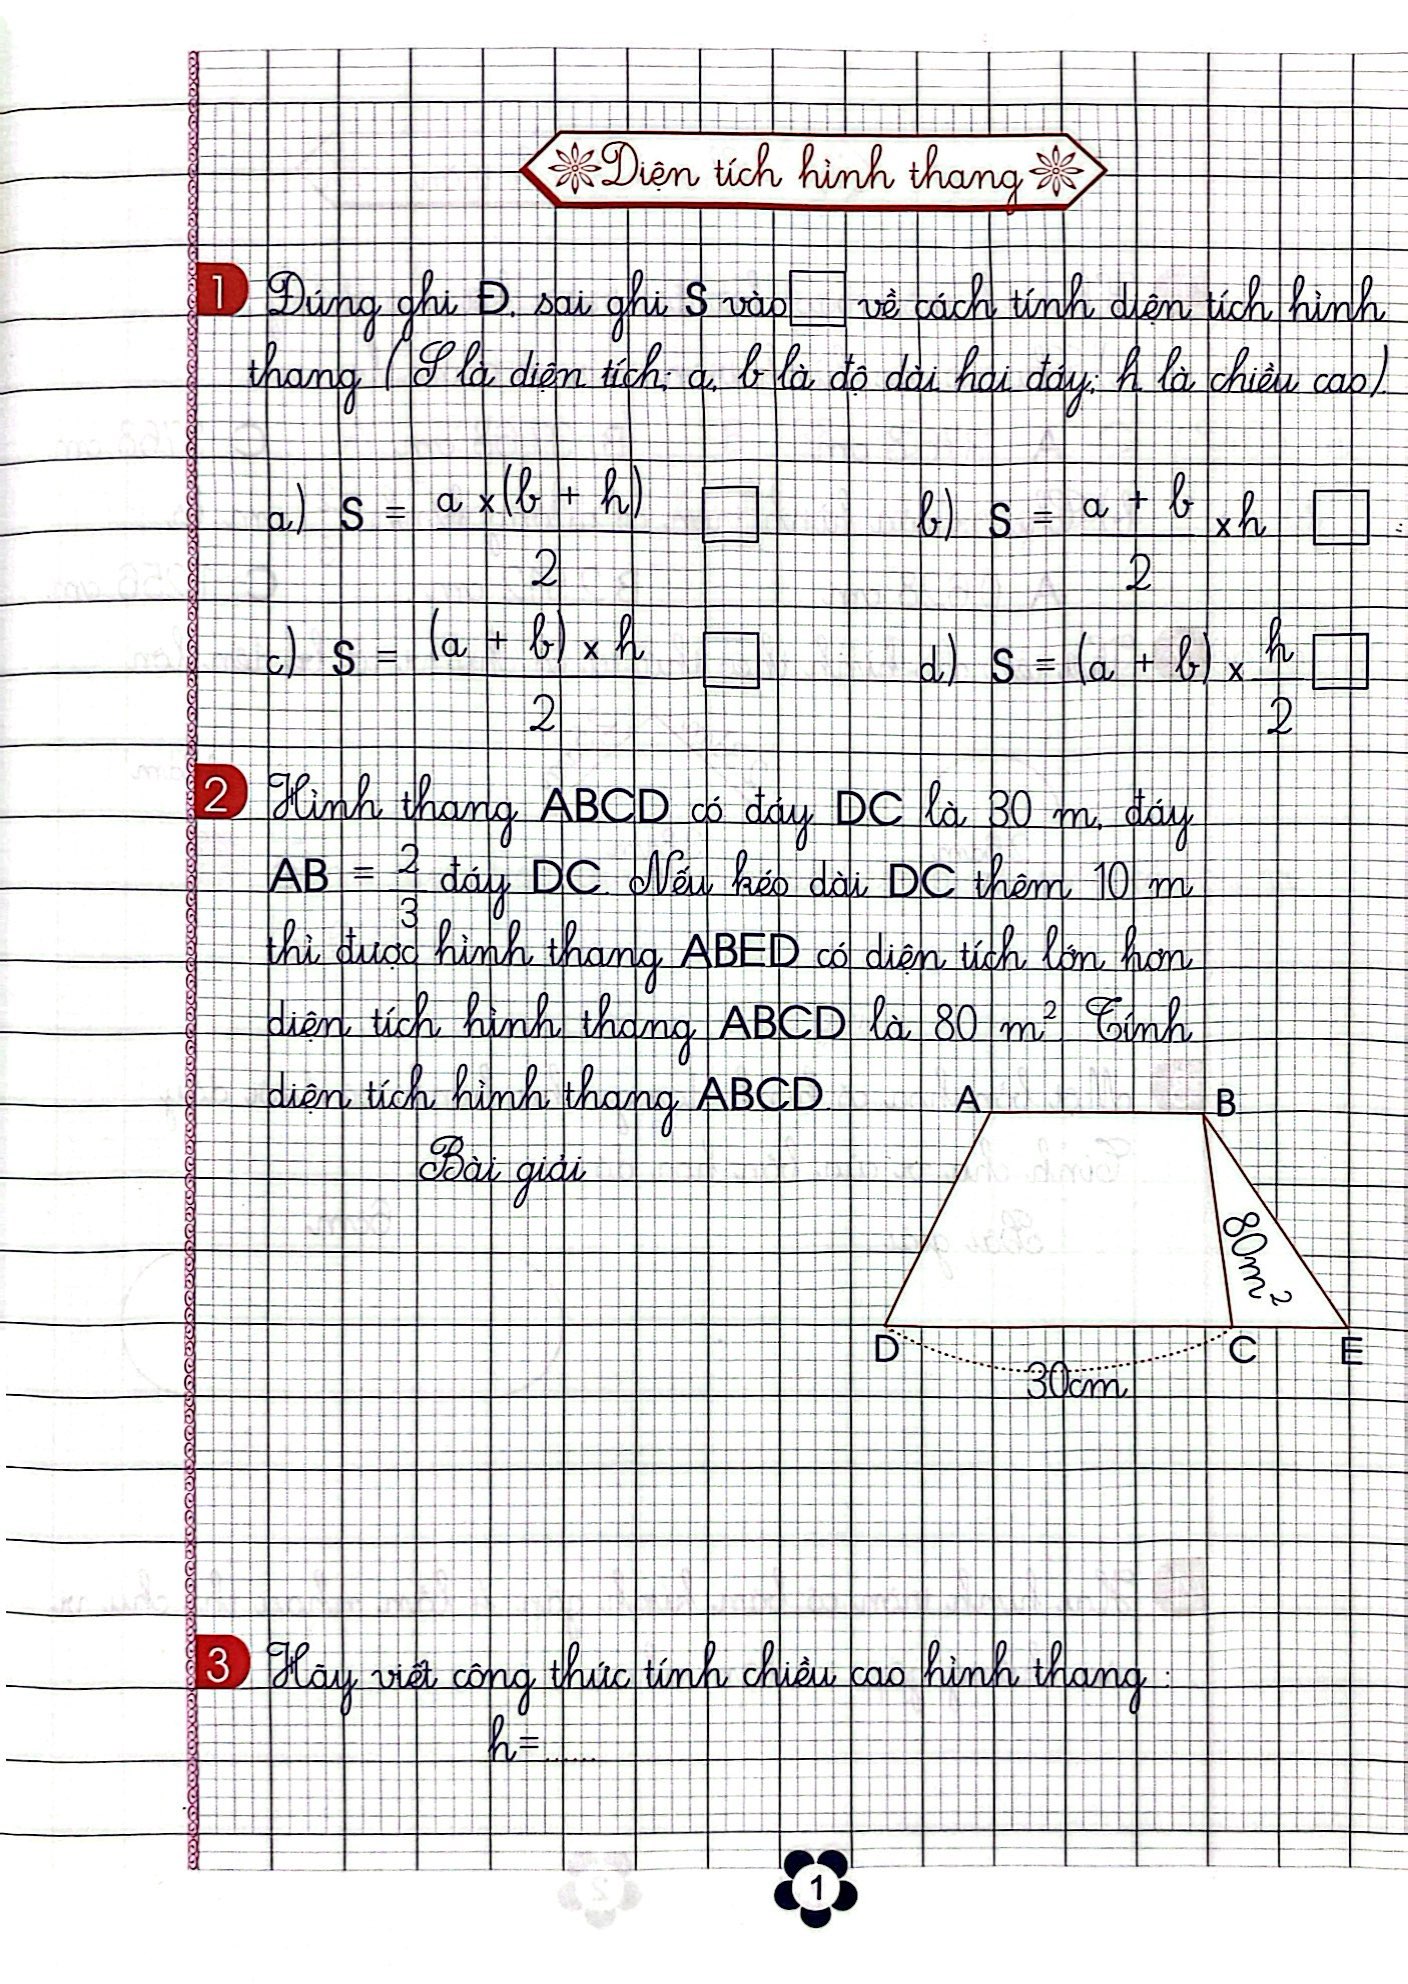 Diện tích hình thang
1 Đúng ghi Đ, sai ghi S vào □ về cách tính diện tích hình
thang (S là diện tích; a, b là độ dài hai đáy; h là chiều cao).
a) S = a x (b + h) / 2 □ b) S = a + b / 2 x h □
c) S = (a + b) x h / 2 □ d) S = (a + b) x h / 2 □
2 Hình thang ABCD có đáy DC là 30 m, đáy
AB = 2/3 đáy DC. Nếu kéo dài DC thêm 10 m
thì được hình thang ABED có diện tích lớn hơn
diện tích hình thang ABCD là 80 m² Tính
diện tích hình thang ABCD.
A B
Bài giải
80m²
D C E
30cm
3 Hãy viết công thức tính chiều cao hình thang :
h=......
1